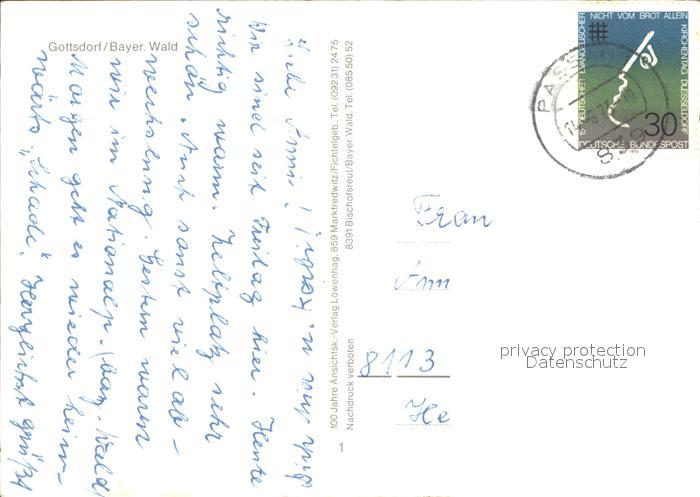 Gottsdorf/Bayer. Wald
Wir sind seit Freitag hier. Heute
richtig warm. Zeltplatz sehr
schön. Auch sonst viel ab-
wechslung. Gestern waren
wir im Nationalp. (Bay. Wald)
Morgen geht es wieder heim-
wärts "Schade". Herzlichst grüßt
100 Jahre Ansichtsk.-Verlag Löwenhag, 859 Marktredwitz/Fichtelgeb., Tel. (09231) 2475
8391 Bischofsreut/Bayer. Wald, Tel. (08550) 52
Nachdruck verboten
1
15. DEUTSCHER EVANGELISCHER KIRCHENTAG DUESSELDORF
NICHT VOM BROT ALLEIN
30
DEUTSCHE BUNDESPOST
PASSAU
Frau
8113
privacy protection
Datenschutz